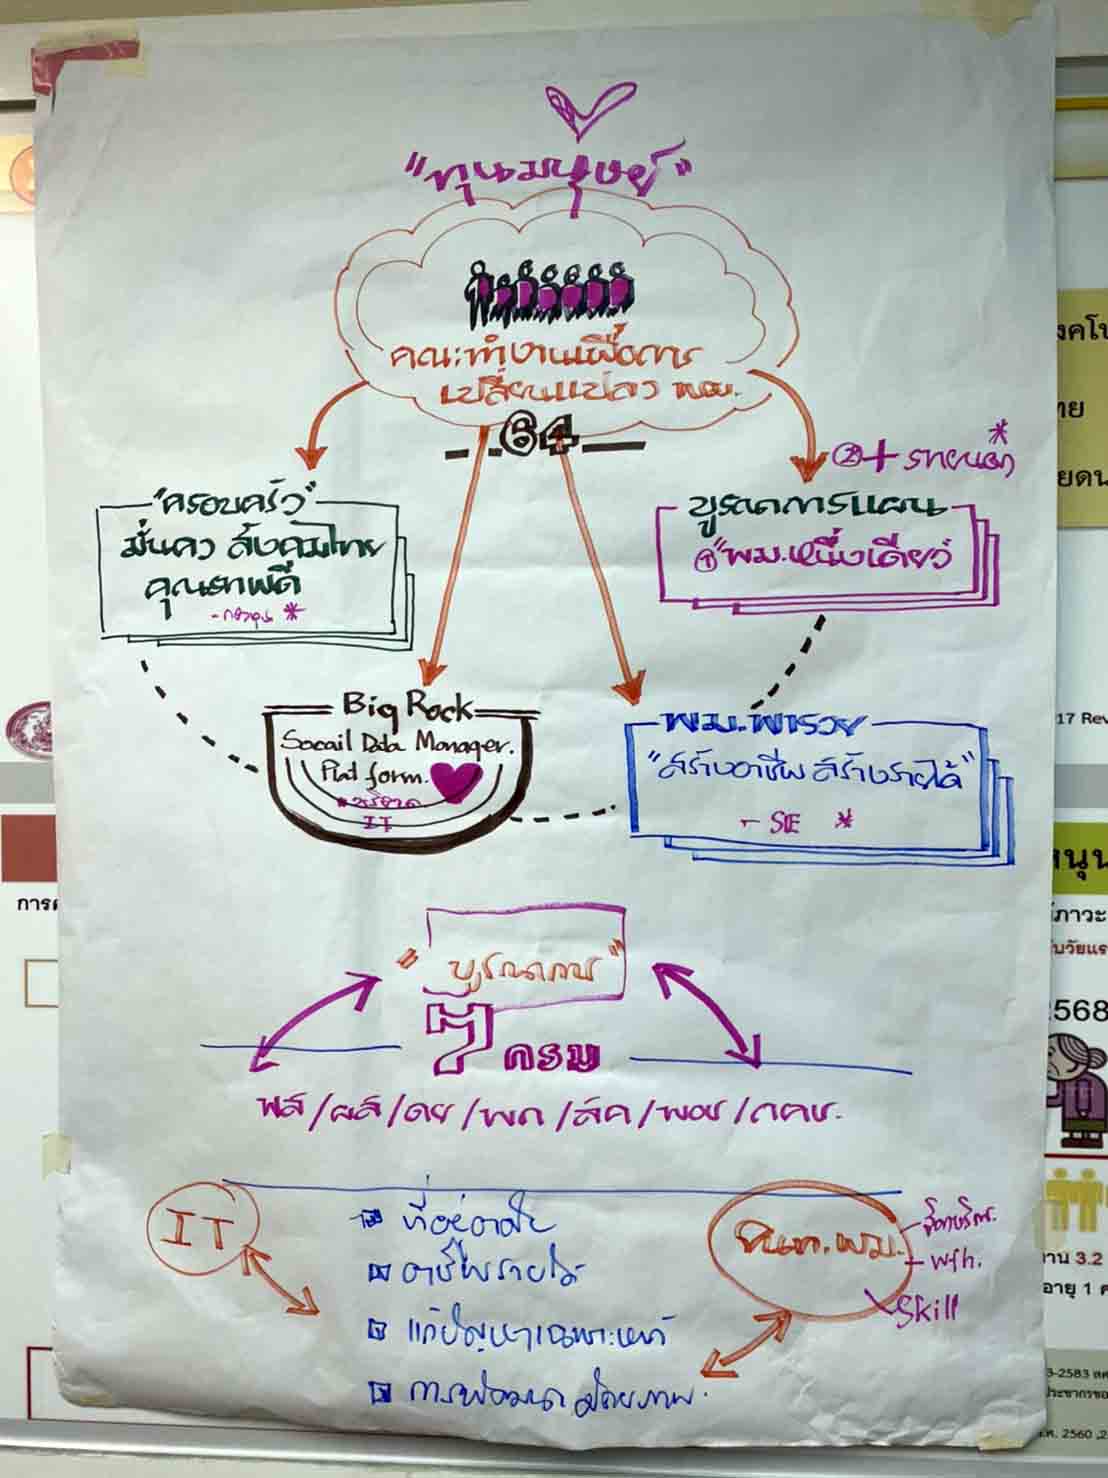 "ทุนมนุษย์"
คณะทำงานเพื่อการ
เปลี่ยนแปลง พม.
64
"ครอบครัว"
มั่นคง สังคมไทย
คุณภาพดี
②+ รายยุทธ *
บูรณาการแผน
① "พม.หนึ่งเดียว"
Big Rock
Socail Data Manager.
Plat form.
IT
พม.พารวย
"สร้างอาชีพ สร้างรายได้"
- SE *
"บูรณาการ"
7 กรม
พส/ผส/ดย/พก/สค/พอช/กคช.
IT
ที่อยู่อาศัย
อาชีพรายได้
แก้ปัญหาเฉพาะหน้า
การพัฒนาศักยภาพ.
จนท.พม.
- wfh.
Skill
งคโน
ทย
ยดน
17 Rev
การ
หนุน
ภาวะ
วัยแร
2568
าน 3.2
อายุ 1
3-2583
ประชากรขอ
.ศ. 2560 ,2